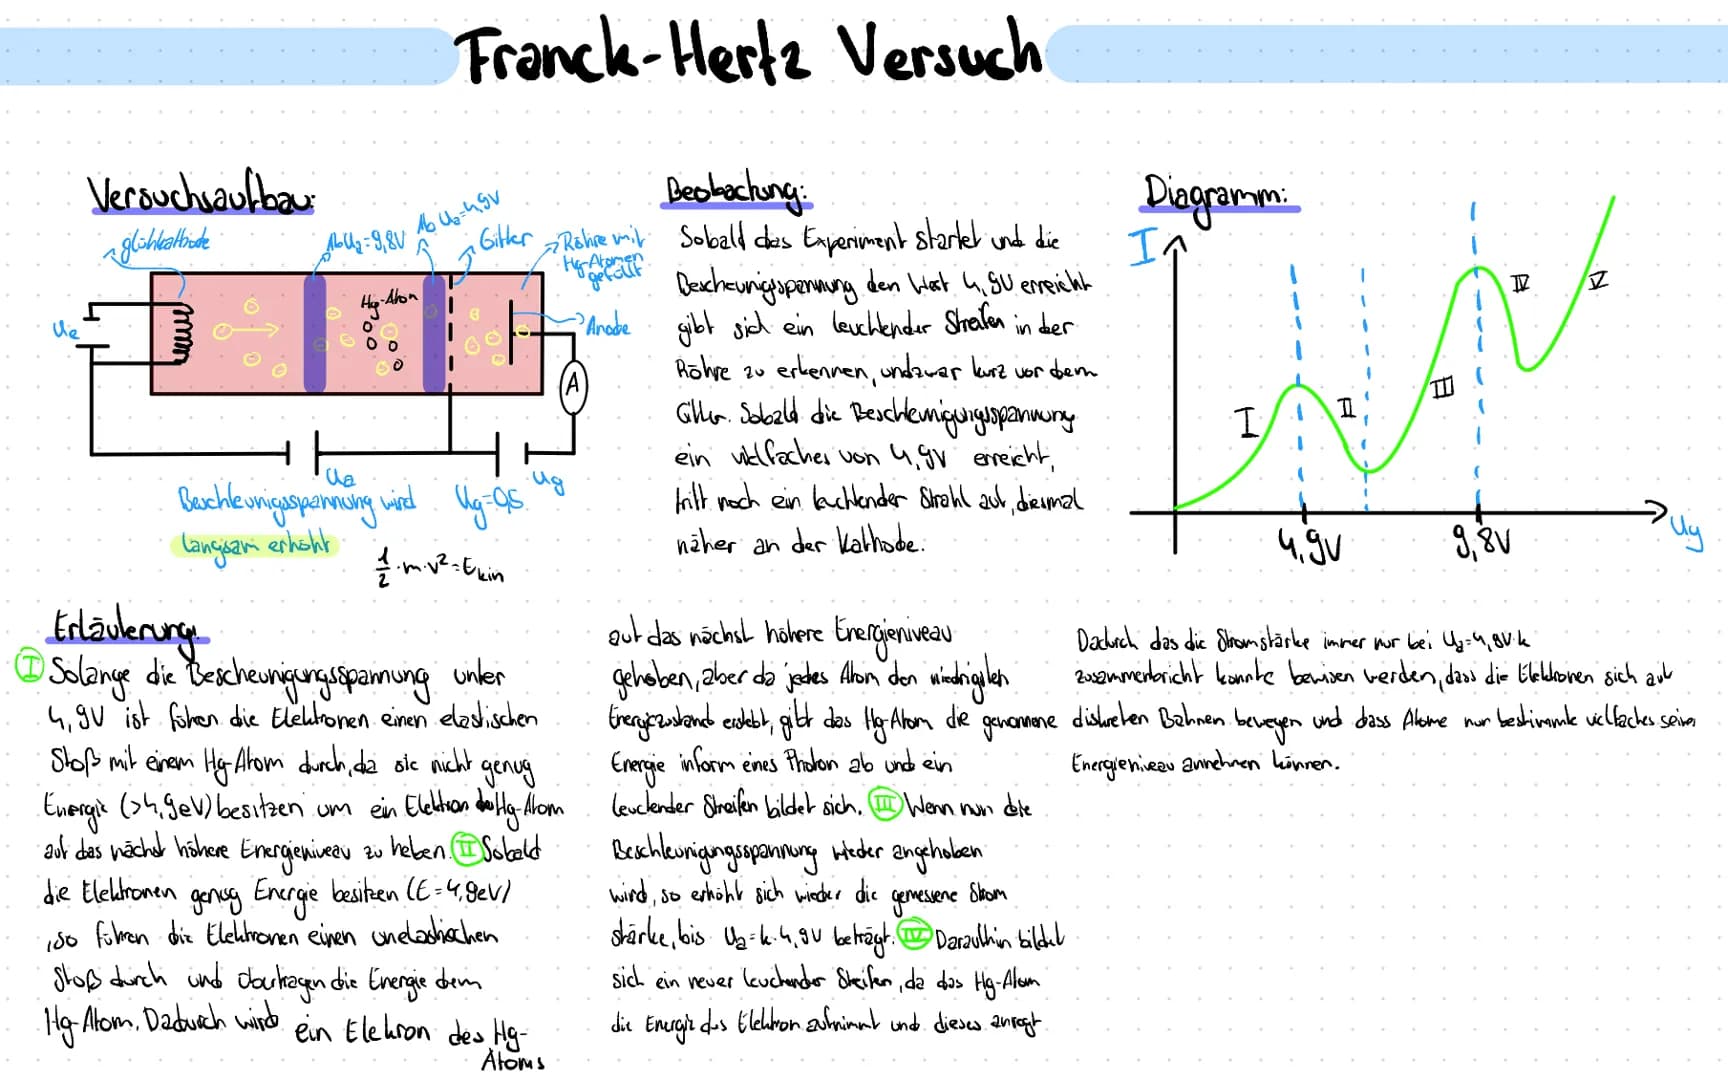 Franck-Hertz Versuch
Versuchsaufbau:
glühkathode
Ab Ua=9,8V
Ab Ua=4,9V
Gitter
Röhre mit
Hg-Atomen
gefüllt
Hg-Atom
Anode
Ue
A
Ua
Ug
Beschleunigsspannung wird
langsam erhöht
Ug=0,5
1/2·m·v²=Ekin
Beobachung:
Sobald das Experiment startet und die
Bescheunigsspannung den Wert 4,9V erreicht
gibt sich ein leuchtender Streifen in der
Röhre zu erkennen, undzwar kurz vor dem
Gitter. Sobald die Beschleunigungsspannung
ein vielfaches von 4,9V erreicht,
tritt noch ein leuchtender Strahl auf, diesmal
näher an der Kathode.
Diagramm:
I
I
II
III
IV
V
4,9V
9,8V
Uy
Erläuterung:
I Solange die Bescheunigungsspannung unter
4,9V ist führen die Elektronen einen elastischen
Stoß mit einem Hg-Atom durch, da sie nicht genug
Energie (>4,9eV) besitzen um ein Elektron Hg-Atom
auf das nächst höhere Energieniveau zu heben. II Sobald
die Elektronen genug Energie besitzen (E=4,9eV)
, so führen die Elektronen einen unelastischen
Stoß durch und übertragen die Energie dem
Hg-Atom. Dadurch wird ein Elekron des Hg-
Atoms
auf das nächst höhere Energieniveau
gehoben, aber da jedes Atom den niedrigsten
Energiezustand erstebt, gibt das Hg-Atom die genommene
Energie inform eines Photon ab und ein
leuchender Streifen bildet sich. III Wenn nun die
Beschleunigungsspannung wieder angehoben
wird, so erhöht sich wieder die gemessene Strom
stärke, bis Ua=k·4,9V beträgt. IV Daraufhin bildet
sich ein neuer leuchender Streifen, da das Hg-Atom
die Energie des Elektron aufnimmt und dieses anregt
Dadurch das die Stromstärke immer nur bei Ua=4,9V·k
zusammenbricht konnte bewisen werden, dass die Elektronen sich auf
diskreten Bahnen bewegen und dass Atome nur bestimmte vielfaches seiner
Energieniveau annehmen können.